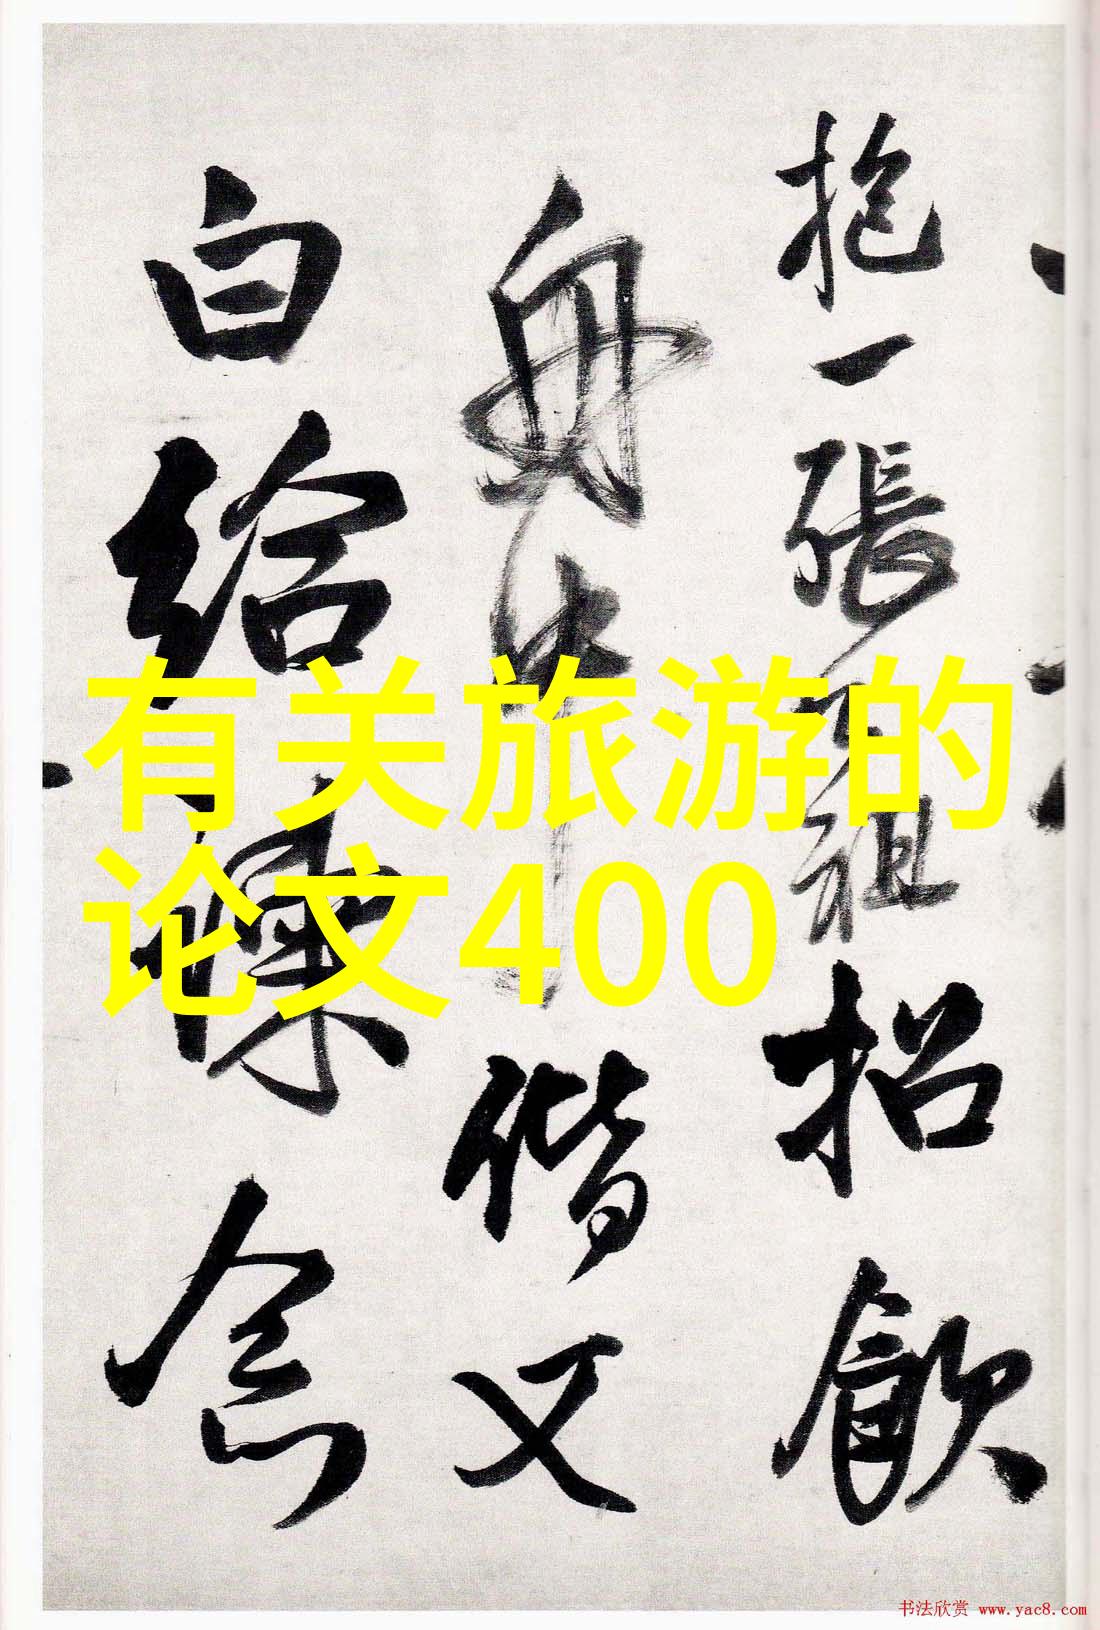 抱一張天祖招飲
舟中偕又
白給諫念
有关旅游的
论文400
书法欣赏 www.yac8.com